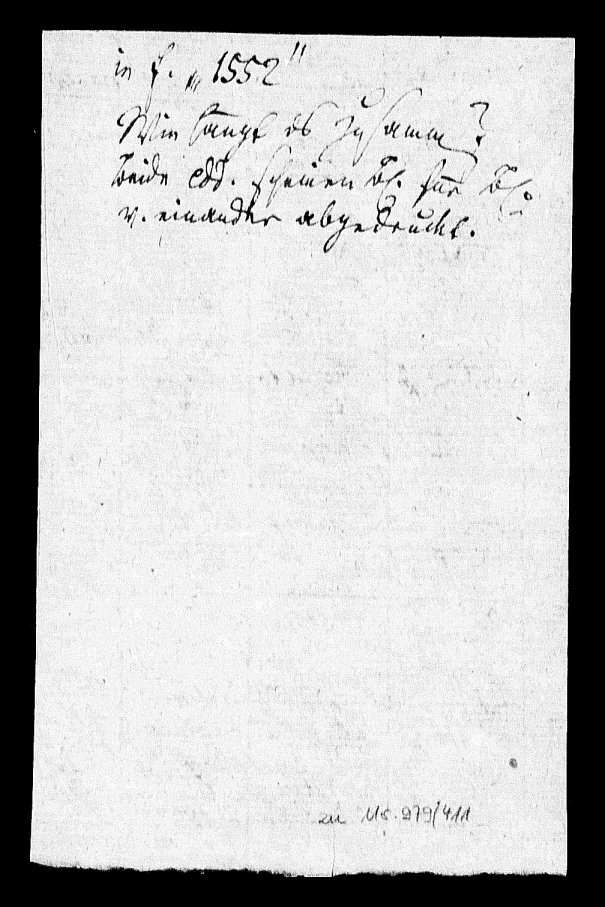 in f. „1552“
Wie hängt es zusamm?
Beide Edd. scheinen Bl. für Bl.
v. einander abgedruckt.
zu Ms. 279/411